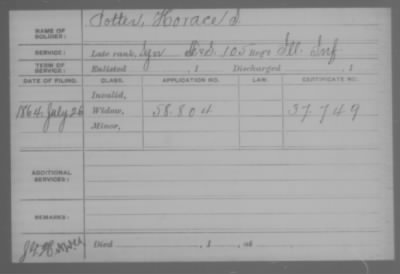 NAME OF SOLDIER: Potter, Horace S.
SERVICE: Late rank, Reg't Ill. Inf
TERM OF SERVICE: Enlisted , 1 Discharged , 1
DATE OF FILING. CLASS. APPLICATION NO. LAW. CERTIFICATE NO.
Invalid,
1864 July 26 Widow, 58.804 37.749
Minor,
ADDITIONAL SERVICES:
REMARKS:
Died , 1 , at